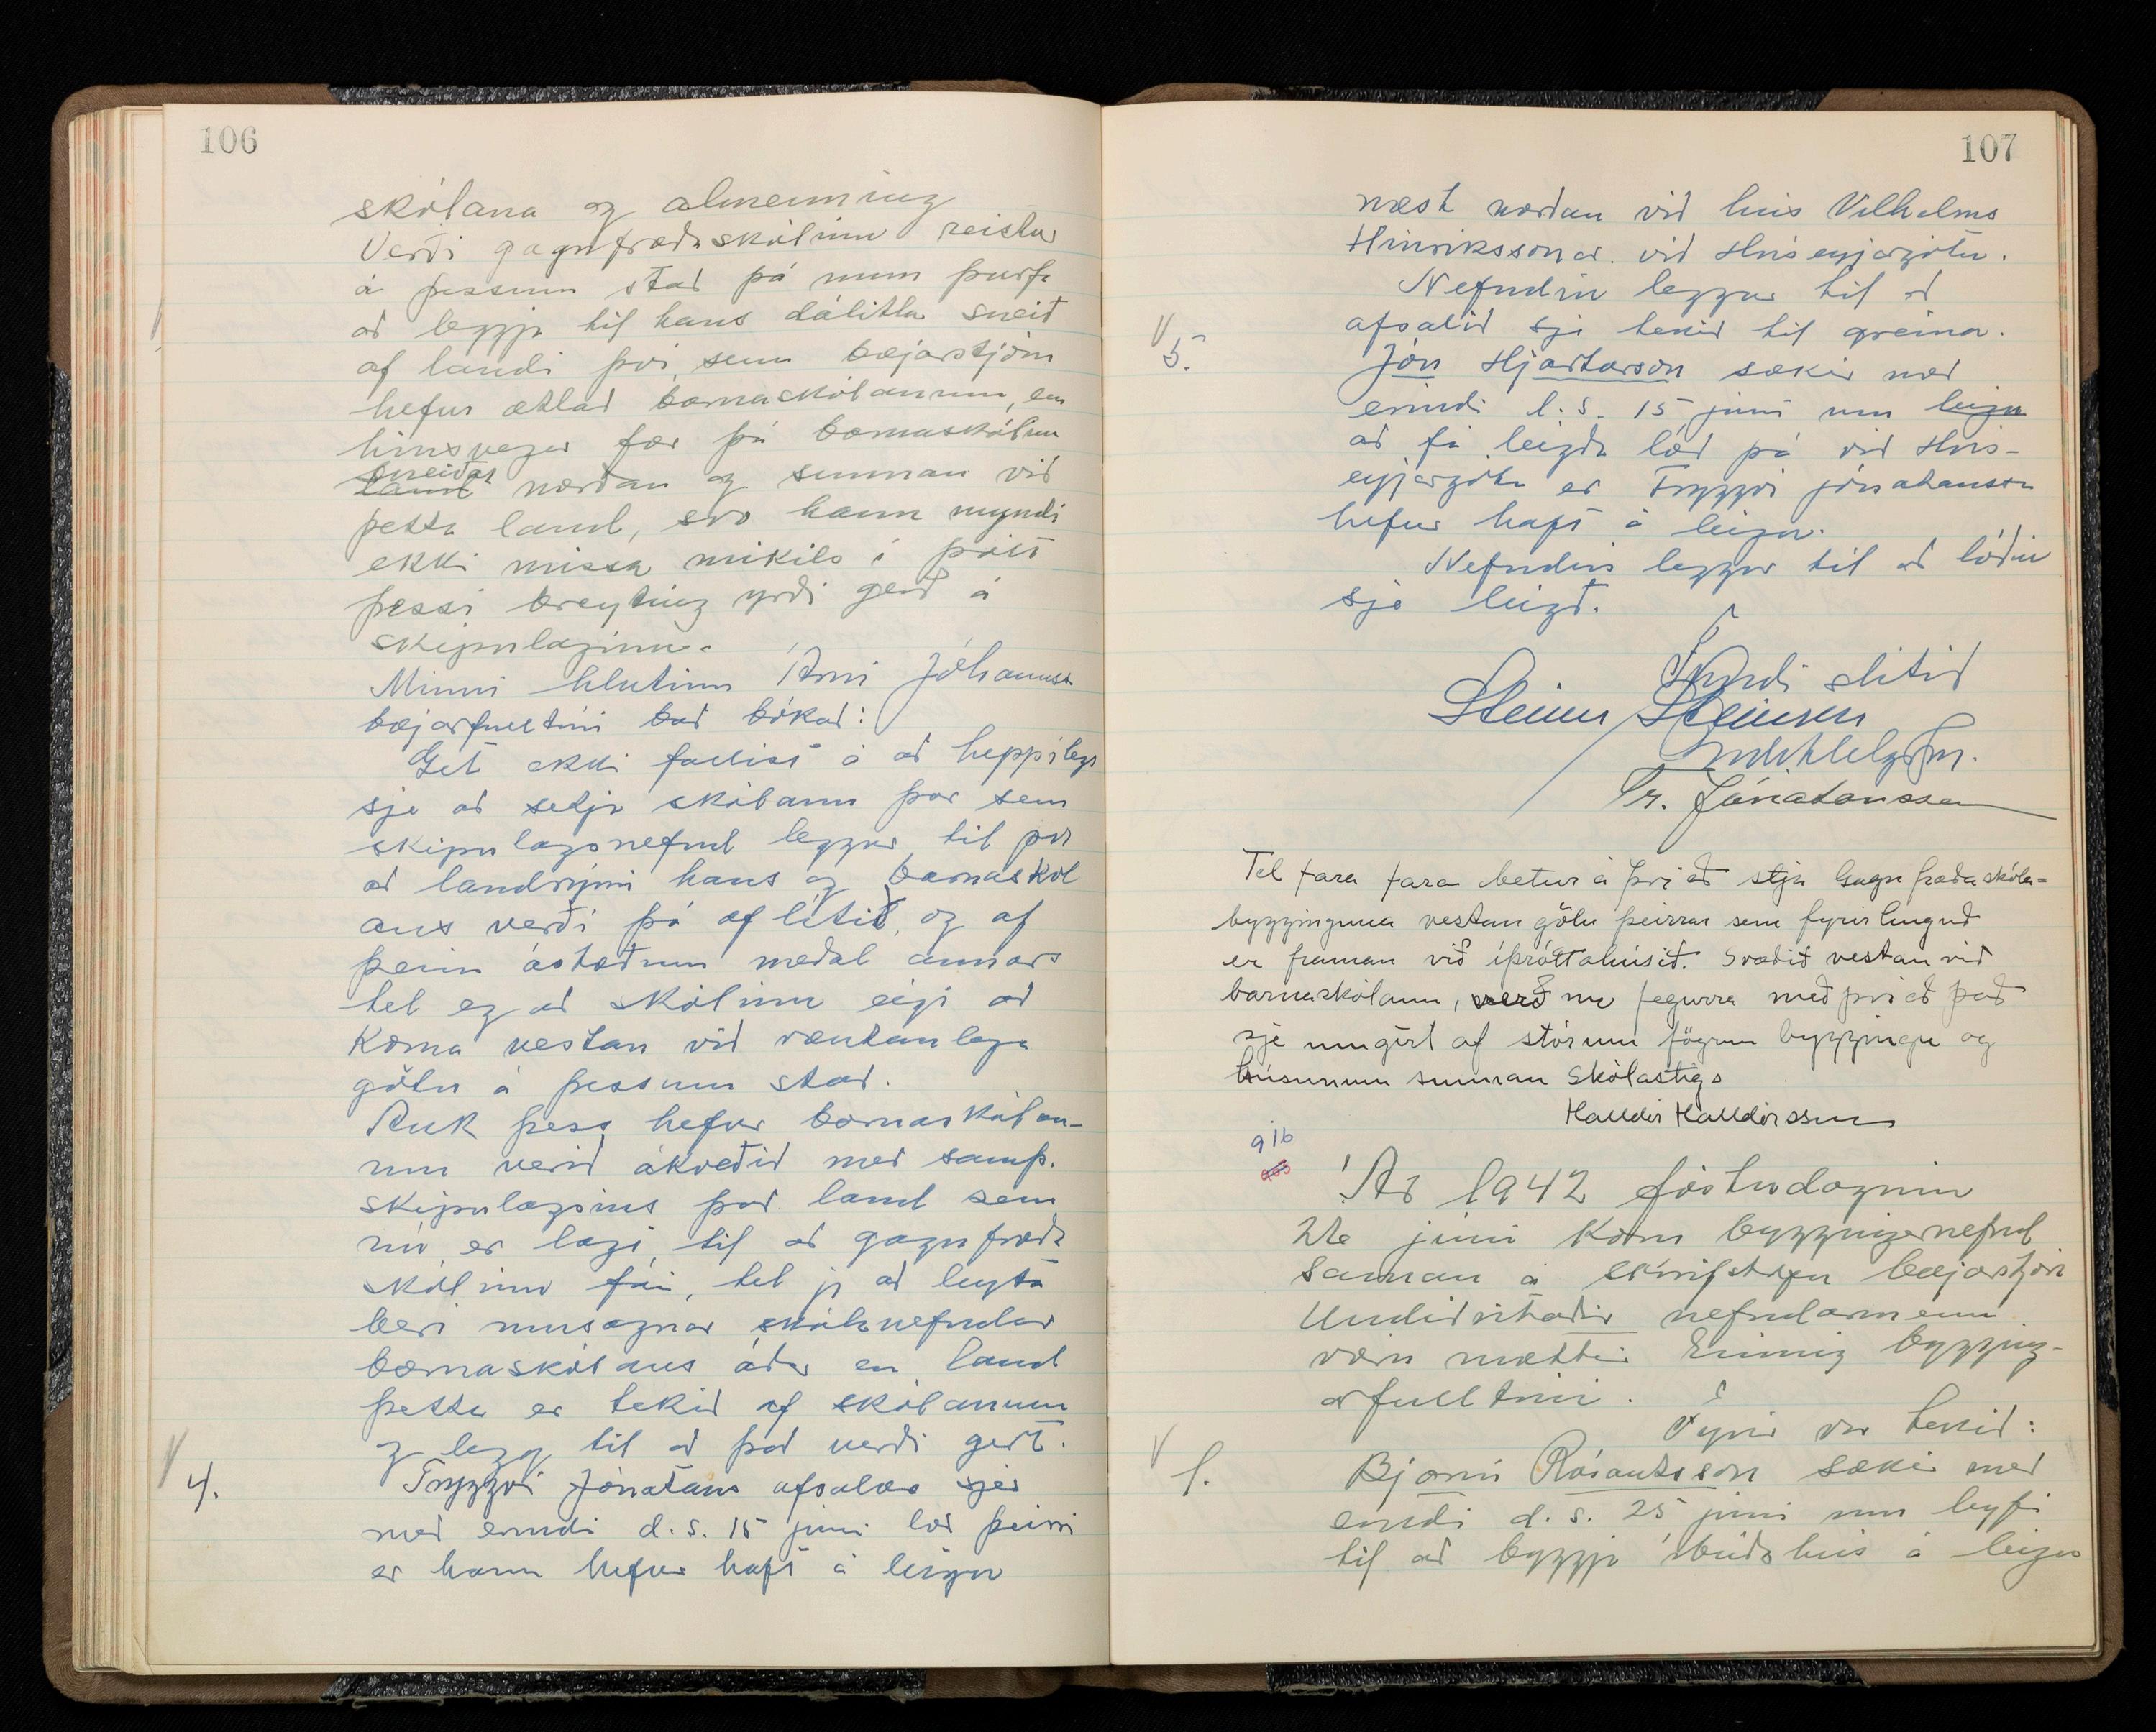 106
skólana og almenning
Verði gagnfræðaskólinn reistur
á þessum stað þá mun þurfa
að leggja til hans dálitla sneið
af landi því, sem bæjarstjórn
hefur ætlað barnaskólanum, en
hinsvegar fær þá barnaskólinn
sneiðar
land norðan og sunnan við
þetta land, svo hann myndi
ekki missa mikils í þótt
þessi breyting yrði gerð á
skipulaginu.
Minni hlutinn Árni Jóhannsson
bæjarfulltrúi bað bókað:
Get ekki fallist á að heppilegt
sje að setja skólann þar sem
skipulagsnefnd leggur til þar
að landrými hans og barnaskól
ans verði þá of lítið, og af
þeim ástæðum meðal annars
tel eg að skólinn eigi að
koma vestan við væntanlega
götu á þessum stað.
Auk þess hefur barnaskólan-
um verið ákveðið með samþ.
skipulagsins það land sem
nú er lagt til að gagnfræða
skólinn fái, tel jeg að leyta
beri umsagnar skólanefndar
barnaskólans áður en land
þetta er tekið af skólanum
og legg til að það verði gert.
4. Tryggvi Jónatans afsalar sjer
með erindi d.s. 15 júní lóð þeirri
er hann hefur haft á leigu
107
næst norðan við hús Vilhelms
Hinrikssonar við Hríseyjargötu.
Nefndin leggur til að
afsalið sje tekið til greina.
5. Jón Hjartarson sækir með
erindi d.s. 15 júní um leigu
að fá leigða lóð þá við Hrís-
eyjargötu er Tryggvi Jónatansson
hefur haft á leigu.
Nefndin leggur til að lóðin
sje leigð.
Fundi slitið
Steinn Steinsen
Tr. Jónatansson
Tel fara fara betur á því að setja Gagnfræðaskóla-
bygginguna vestan götu þeirrar sem fyrirhuguð
er framan við íþróttahúsið. Svæðið vestan við
barnaskólann, verður fegurra með því að það
sje umgirt af stórum fögrum byggingu og
húsunum sunnan Skólastígs
Halldór Halldórsson
916
Ár 1942 föstudaginn
26 júní kom bygginganefnd
saman á skrifstofu bæjarstjóra
Undirritaðir nefndarmenn
voru mættir Einnig bygging-
arfulltrúi.
Fyrir var tekið:
1. Bjarni Rósantsson sækir með
erindi d.s. 25 júní um leyfi
til að byggja íbúðshús á leigu